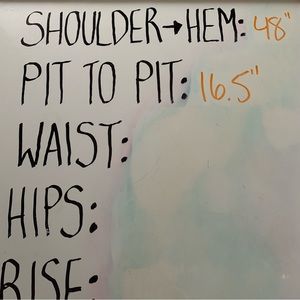 SHOULDER→HEM: 48"
PIT TO PIT: 16.5"
WAIST:
HIPS:
RISE: